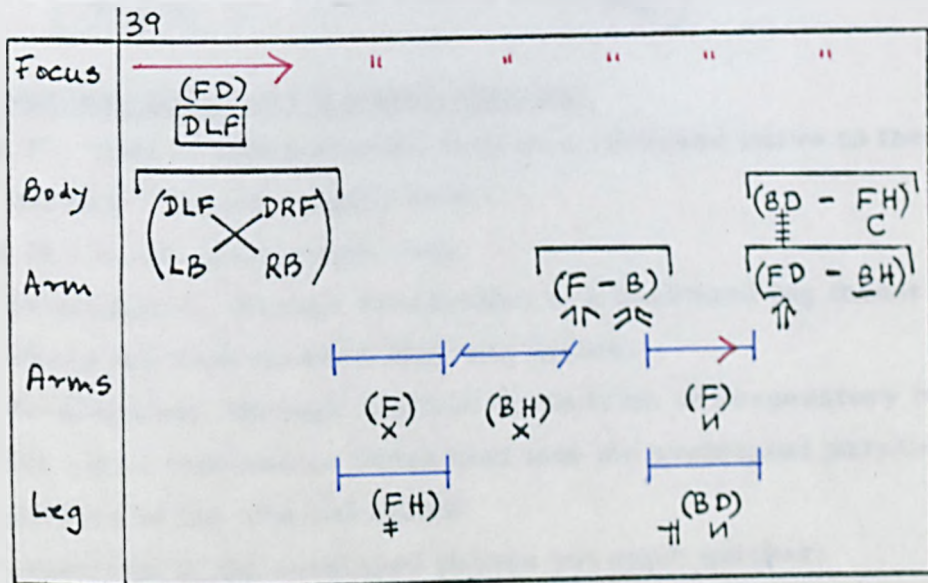 39
Focus " " " " "
(FD)
DLF
Body (DLF DRF (BD - FH)
C
LB RB)
Arm (F - B) (FD - BH)
Arms
(F) (BH) (F)
Leg (FH) (BD)